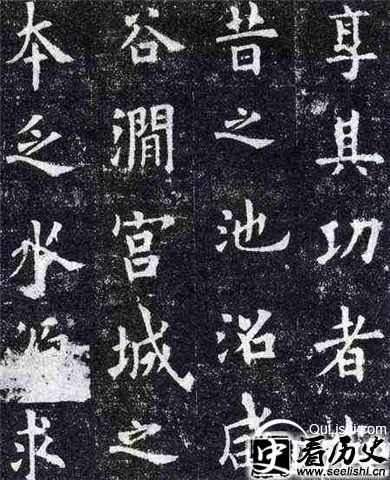 享其功者
昔之池沼咸
谷澗宮城之
本乏水求
看历史
www.seelishi.cn